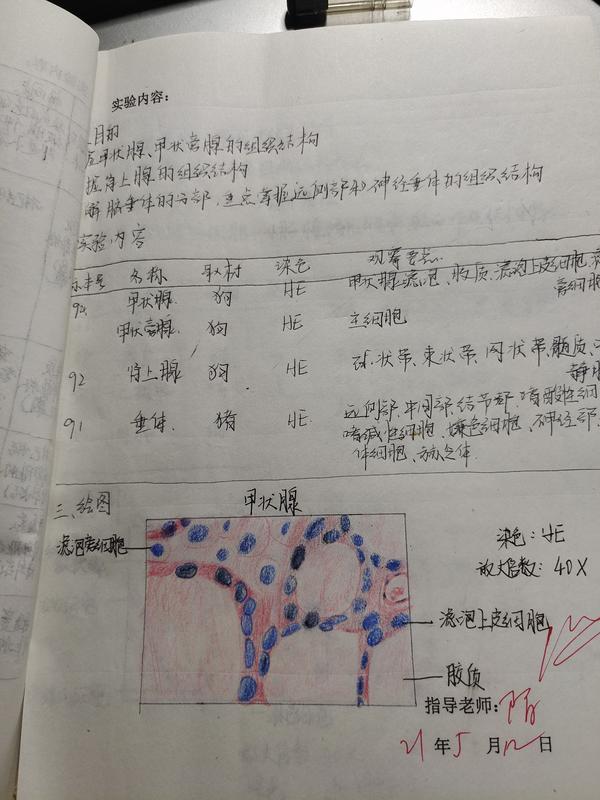 实验内容：
目的
甲状腺、甲状旁腺的组织结构
握肾上腺的组织结构
解脑垂体的分部，重点掌握远侧部和神经垂体的组织结构
实验内容
标本号 名称 取材 染色 观察要点
92 甲状腺 狗 HE 甲状腺滤泡、胶质、滤泡上皮细胞、
旁细胞
甲状旁腺 狗 HE 主细胞
92 肾上腺 狗 HE 球状带、束状带、网状带、髓质、
静脉
91 垂体 猪 HE 远侧部、中间部、结节部、嗜酸性细
嗜碱性细胞、嫌色细胞、神经部、
体细胞、赫令体
三、绘图 甲状腺
滤泡旁细胞
染色：HE
放大倍数：40X
滤泡上皮细胞
胶质
指导老师：
21年5月12日